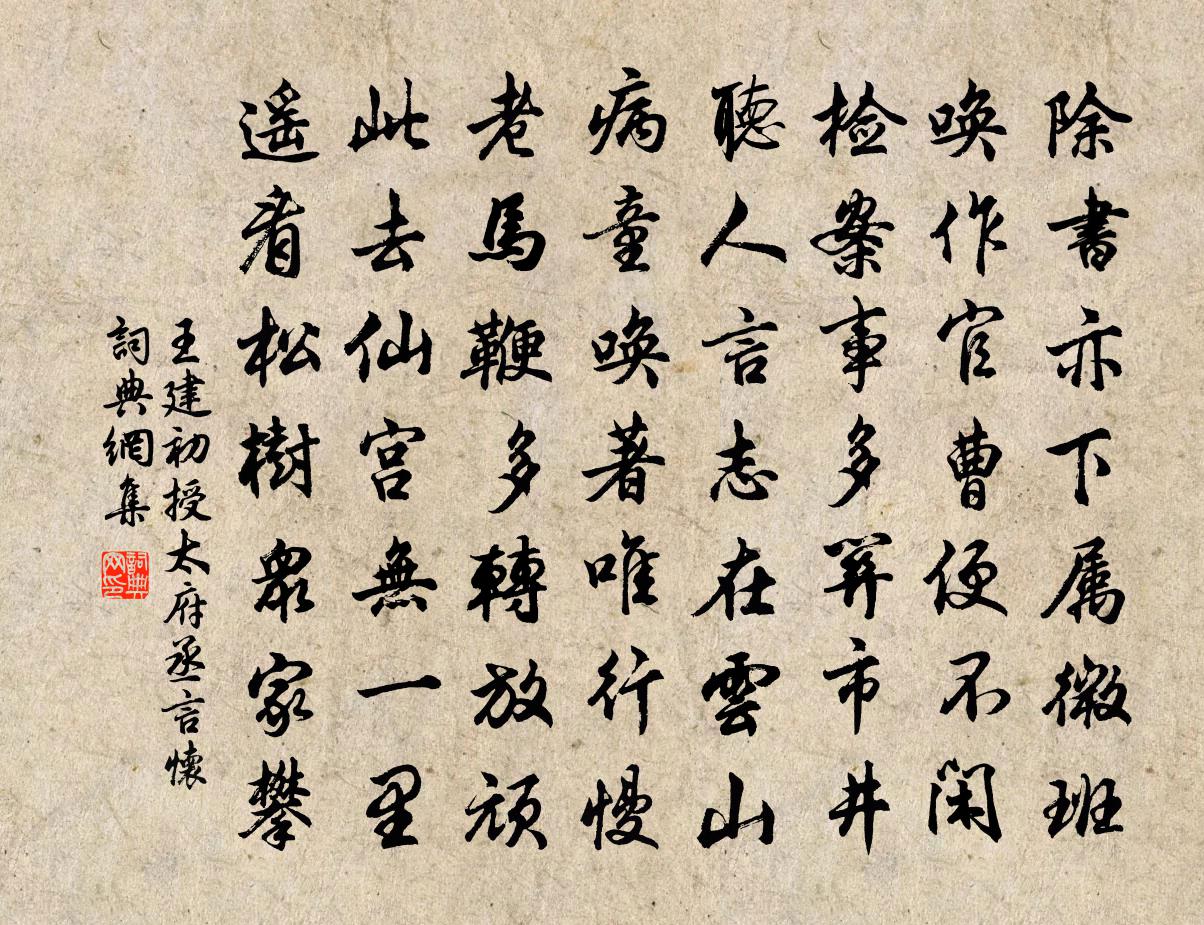 除書亦下属微班
喚作官曹便不閑
檢案事多筭市井
聽人言志在雲山
病童喚著唯行慢
老馬鞭多轉放頑
此去仙宮無一里
遥看松樹衆家攀
王建初授太府丞言懷
詞典網集
詞典網印